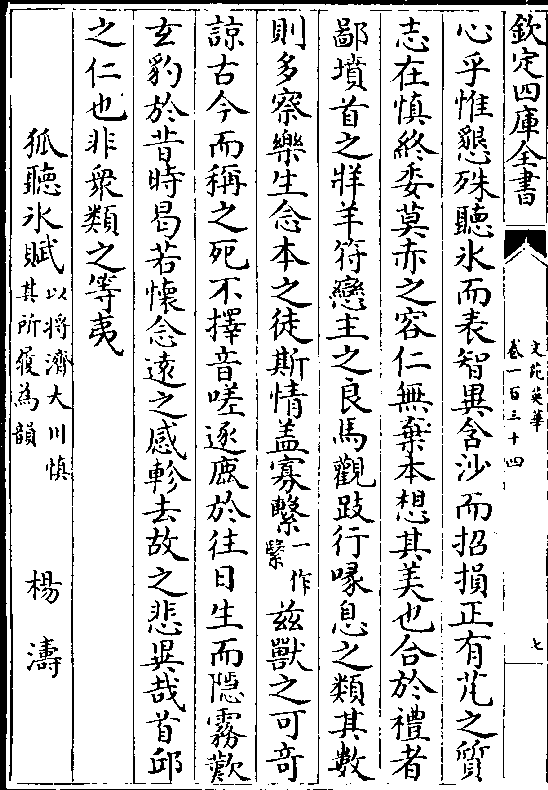 欽定四庫全書
文苑英華
卷一百三十四
七
心乎惟懇殊聽氷而表智異含沙而招損正有芃之質
志在慎終委莫赤之容仁無棄本想其美也合於禮者
鄙墳首之牂羊符戀主之良馬觀跂行喙息之類其數
則多察樂生念本之徒斯情盖寡繫一作緊兹獸之可竒
諒古今而稱之死不擇音嗟逐鹿於往日生而隱霧歎
玄豹於昔時曷若懷念遠之感軫去故之悲異哉首邱
之仁也非衆類之等夷
狐聽氷賦以將濟大川慎其所履為韻 楊濤